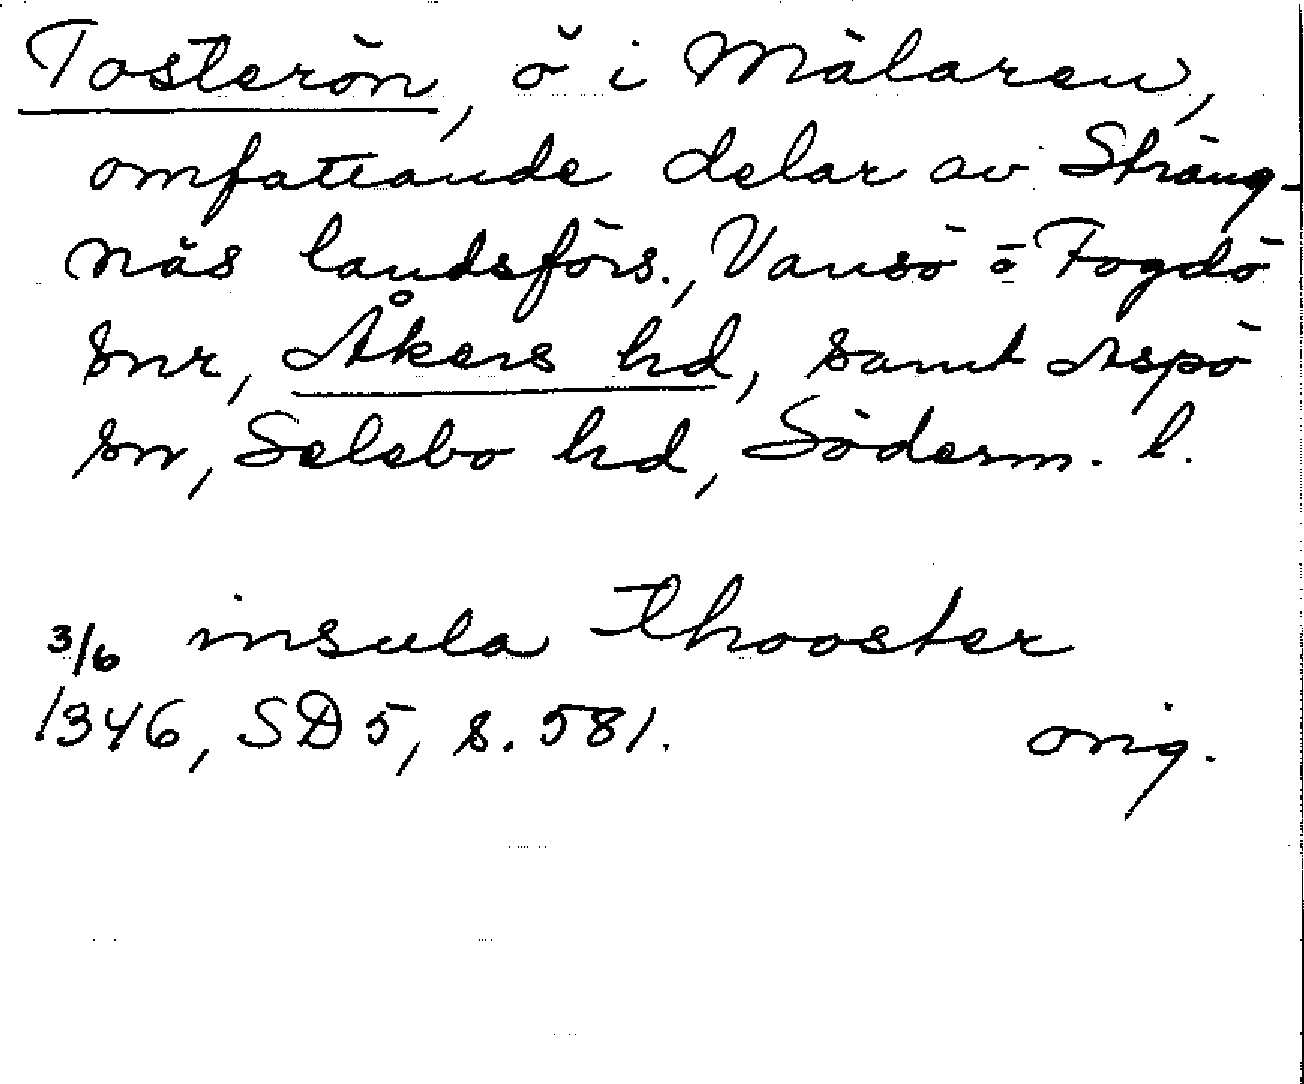 Tosterön, ö i Mälaren,
omfattande delar av Sträng-
näs landsförs., Vansö o Fogdö
snr, Åkers hd, samt Aspö
sn, Selebo hd, Söderm. l.
3/6 insula Thooster
1346, SD 5, s. 581. orig.